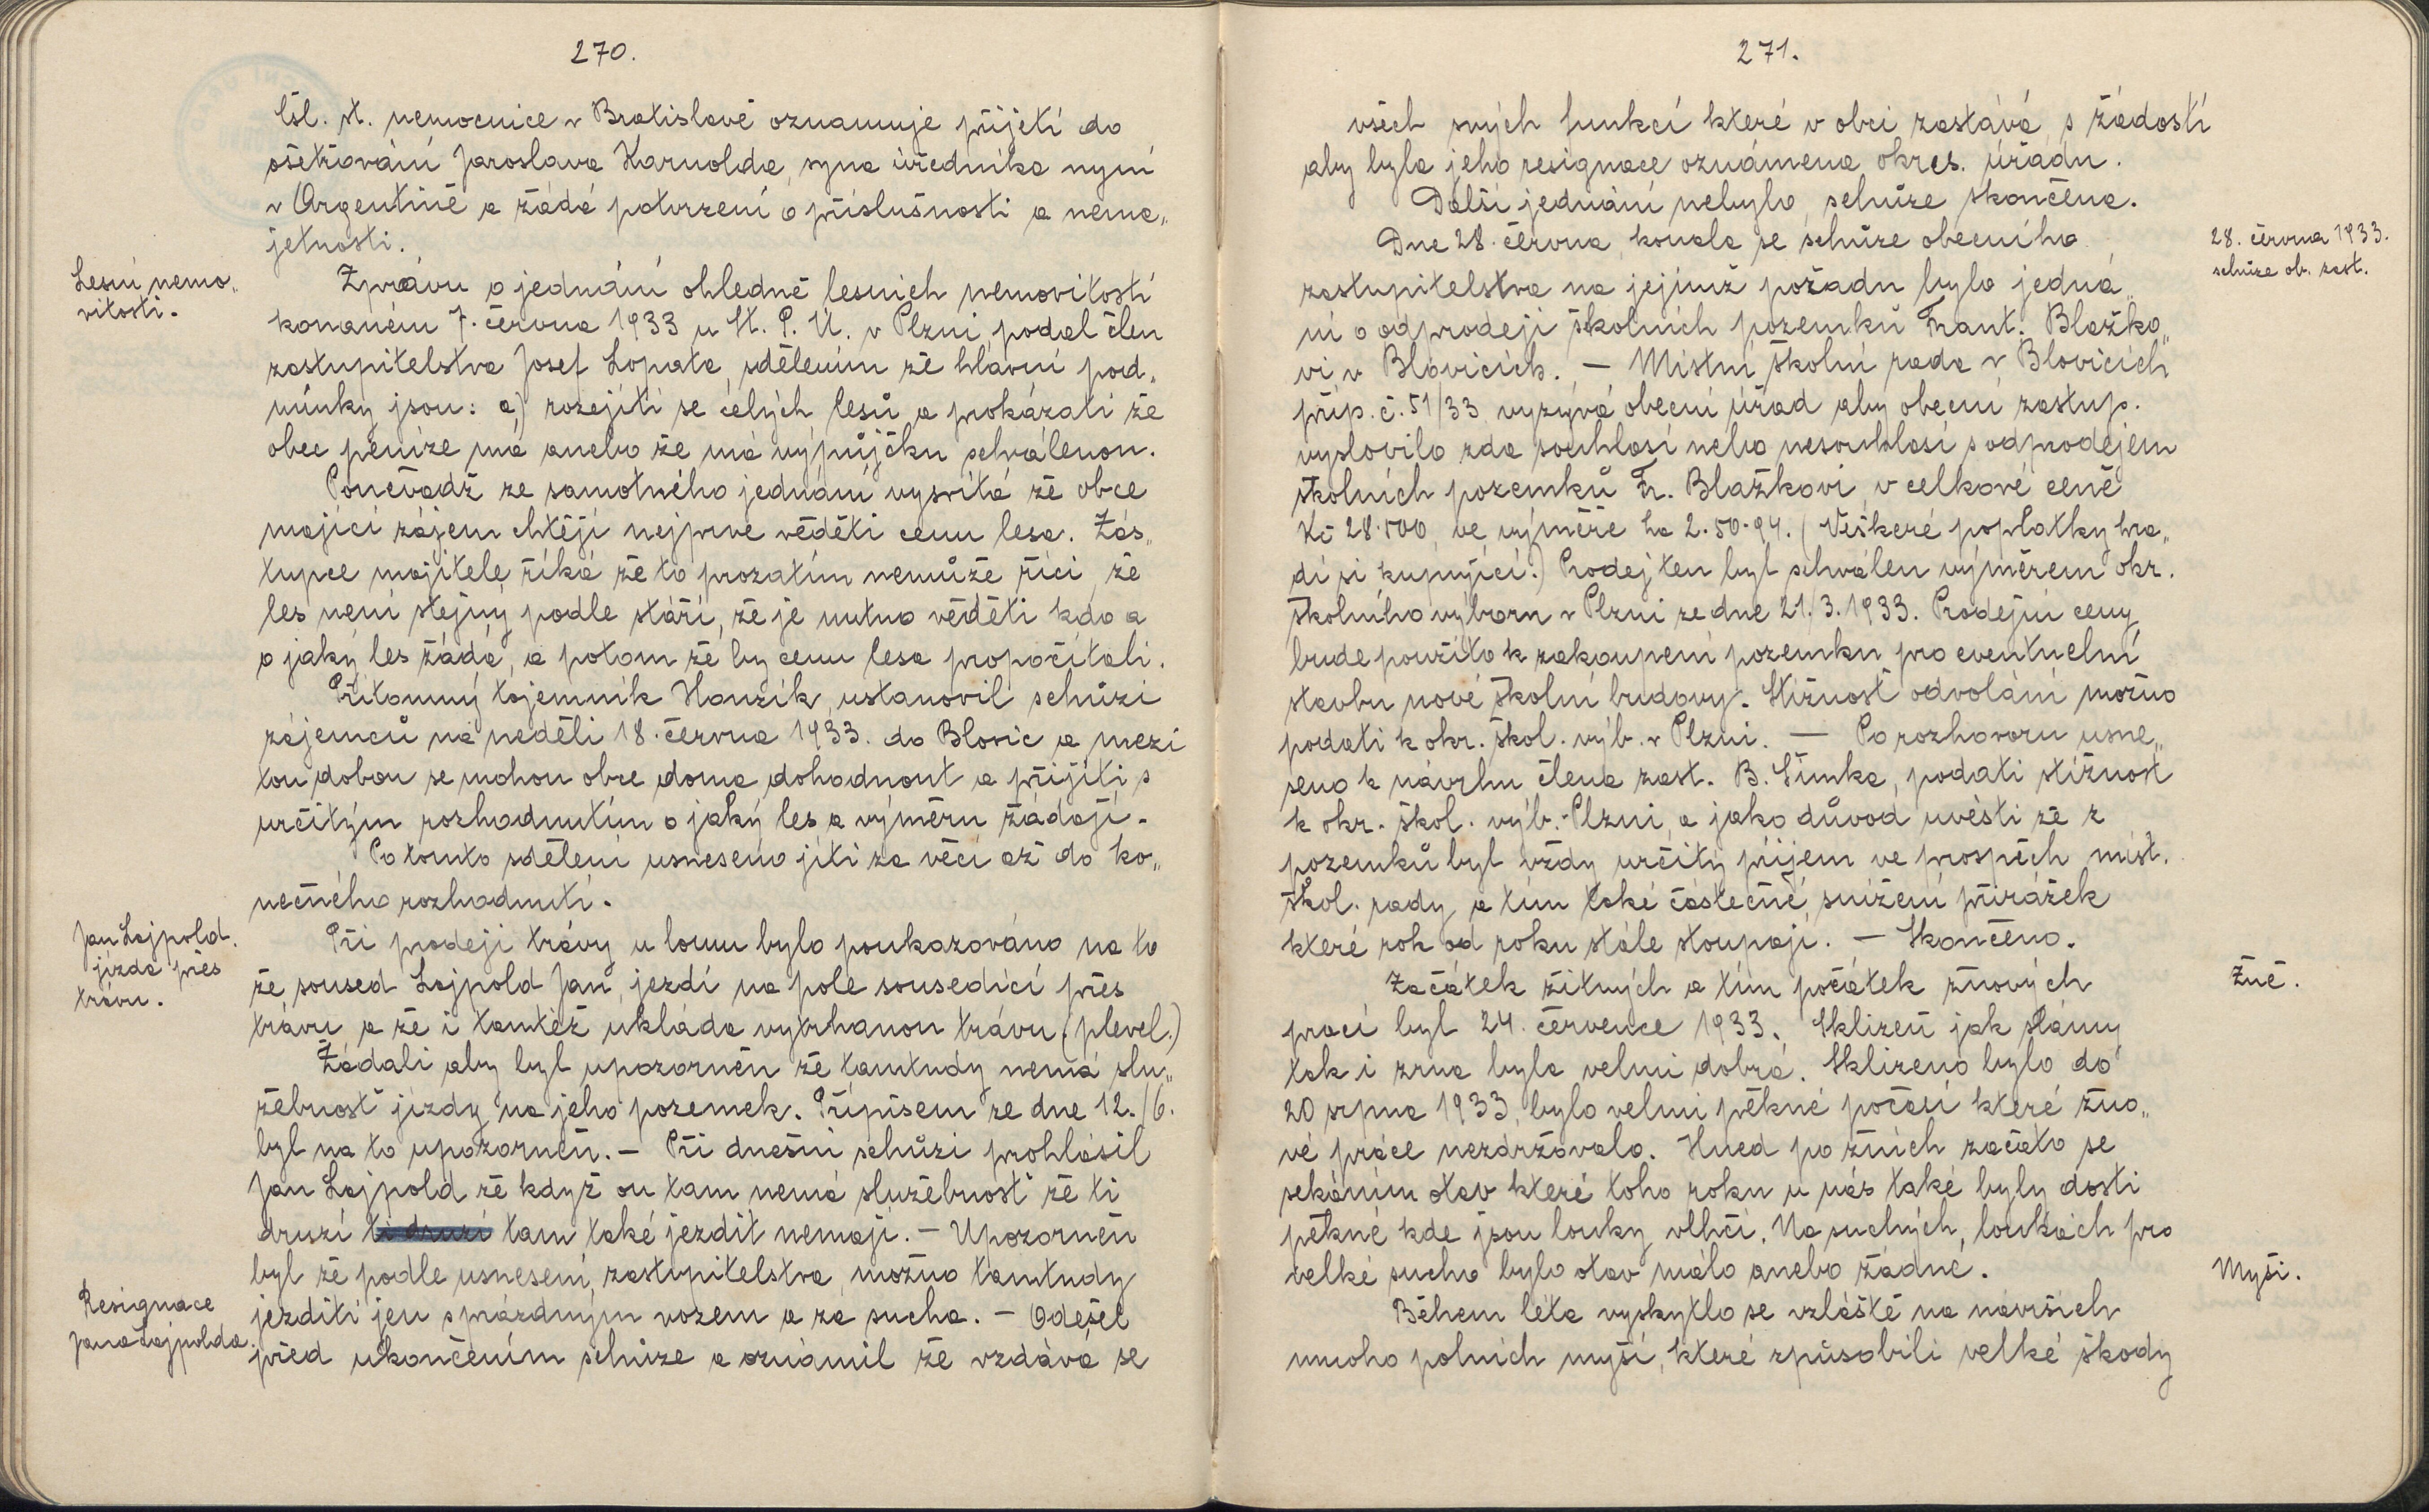 270.
čsl. st. nemocnice v Bratislavě oznamuje přijetí do
ošetřování Jaroslava Karnolda, syna úředníka nyní
v Argentině a žádá potvrzení o příslušnosti a nema„
jetnosti.
Lesní nemo„
vitosti.
Zprávu o jednání ohledně lesních nemovitostí
konaném 7. června 1933 u St. P. Ú. v Plzni, podal člen
zastupitelstva Josef Lopata, sdělením že hlavní pod„
mínky jsou: a) rozejíti se celých lesů a prokázati že
obec peníze má anebo že má výpůjčku schválenou.
Poněvadž ze samotného jednání vysvítá že obce
mající zájem chtějí nejprve věděti cenu lesa. Zás„
tupce majitele říká že to prozatím nemůže říci, že
les není stejný podle stáří, že je nutno věděti kdo a
o jaký les žádá, a potom že by cenu lesa propočítali.
Přítomný tajemník Honzík, ustanovil schůzi
zájemců na neděli 18. června 1933. do Blovic a mezi
tou dobou se mohou obce doma dohodnout a přijíti s
určitým rozhodnutím o jaký les a výměru žádají.
Po tomto sdělení usneseno jíti za věcí až do ko„
nečného rozhodnutí.
Jan Lajpold.
jízda přes
trávu.
Při prodeji trávy u lomu bylo poukazováno na to
že soused Lajpold Jan, jezdí na pole sousedící přes
trávu a že i tamtéž ukládá vytrhanou trávu (plevel.)
Žádali aby byl upozorněn že tamtudy nemá slu„
žebnost jízdy na jeho pozemek. Přípisem ze dne 12./6.
byl na to upozorněn. — Při dnešní schůzi prohlásil
Jan Lajpold že když on tam nemá služebnost že ti
druzí ti druzí tam také jezdit nemají. — Upozorněn
byl že podle usnesení zastupitelstva možno tamtudy
Resignace
Jana Lajpolda.
jezditi jen s prázdným vozem a za sucha. — Odešel
před ukončením schůze a oznámil že vzdává se
271.
všech svých funkcí které v obci zastává, s žádostí
aby byla jeho resignace oznámena okres. úřadu.
Další jednání nebylo, schůze skončena.
28. června 1933.
schůze ob. zast.
Dne 28. června, konala se schůze obecního
zastupitelstva na jejímž pořadu bylo jedná„
ní o odprodeji školních pozemků Frant. Blažko„
vi v Blovicích. — Místní školní rada v Blovicích
příp. č. 51/33 vyzývá obecní úřad aby obecní zastup.
vyslovilo zda souhlasí nebo nesouhlasí s odprodejem
školních pozemků Fr. Blažkovi, v celkové ceně
Kč 28.500, ve výměře ha 2.50.94. (Veškeré poplatky hra„
dí si kupující.) Prodej ten byl schválen výměrem okr.
školního výboru v Plzni ze dne 21./3. 1933. Prodejní ceny
bude použito k zakoupení pozemku pro eventuelní
stavbu nové školní budovy. Stížnost odvolání možno
podati k okr. škol. výb. v Plzni. — Po rozhovoru usne„
seno k návrhu člena zast. B. Šimka, podati stížnost
k okr. škol. výb. Plzni, a jako důvod uvésti že z
pozemků byl vždy určitý příjem ve prospěch míst.
škol. rady a tím také částečné snížení přirážek
které rok od roku stále stoupají. — Skončeno.
Žně.
Začátek žitných a tím počátek žňových
prací byl 24. července 1933. Sklizeň jak slámy
tak i zrna byla velmi dobrá. Sklizeno bylo do
20 srpna 1933, bylo velmi pěkné počasí které žňo„
vé práce nezdržovalo. Hned po žních začato se
sekáním otav které toho roku u nás také byly dosti
pěkné kde jsou louky vlhčí. Na suchých, loukách pro
velké sucho bylo otav málo anebo žádné.
Myši.
Během léta vyskytlo se vzláště na návrších
mnoho polních myší, které způsobili velké škody